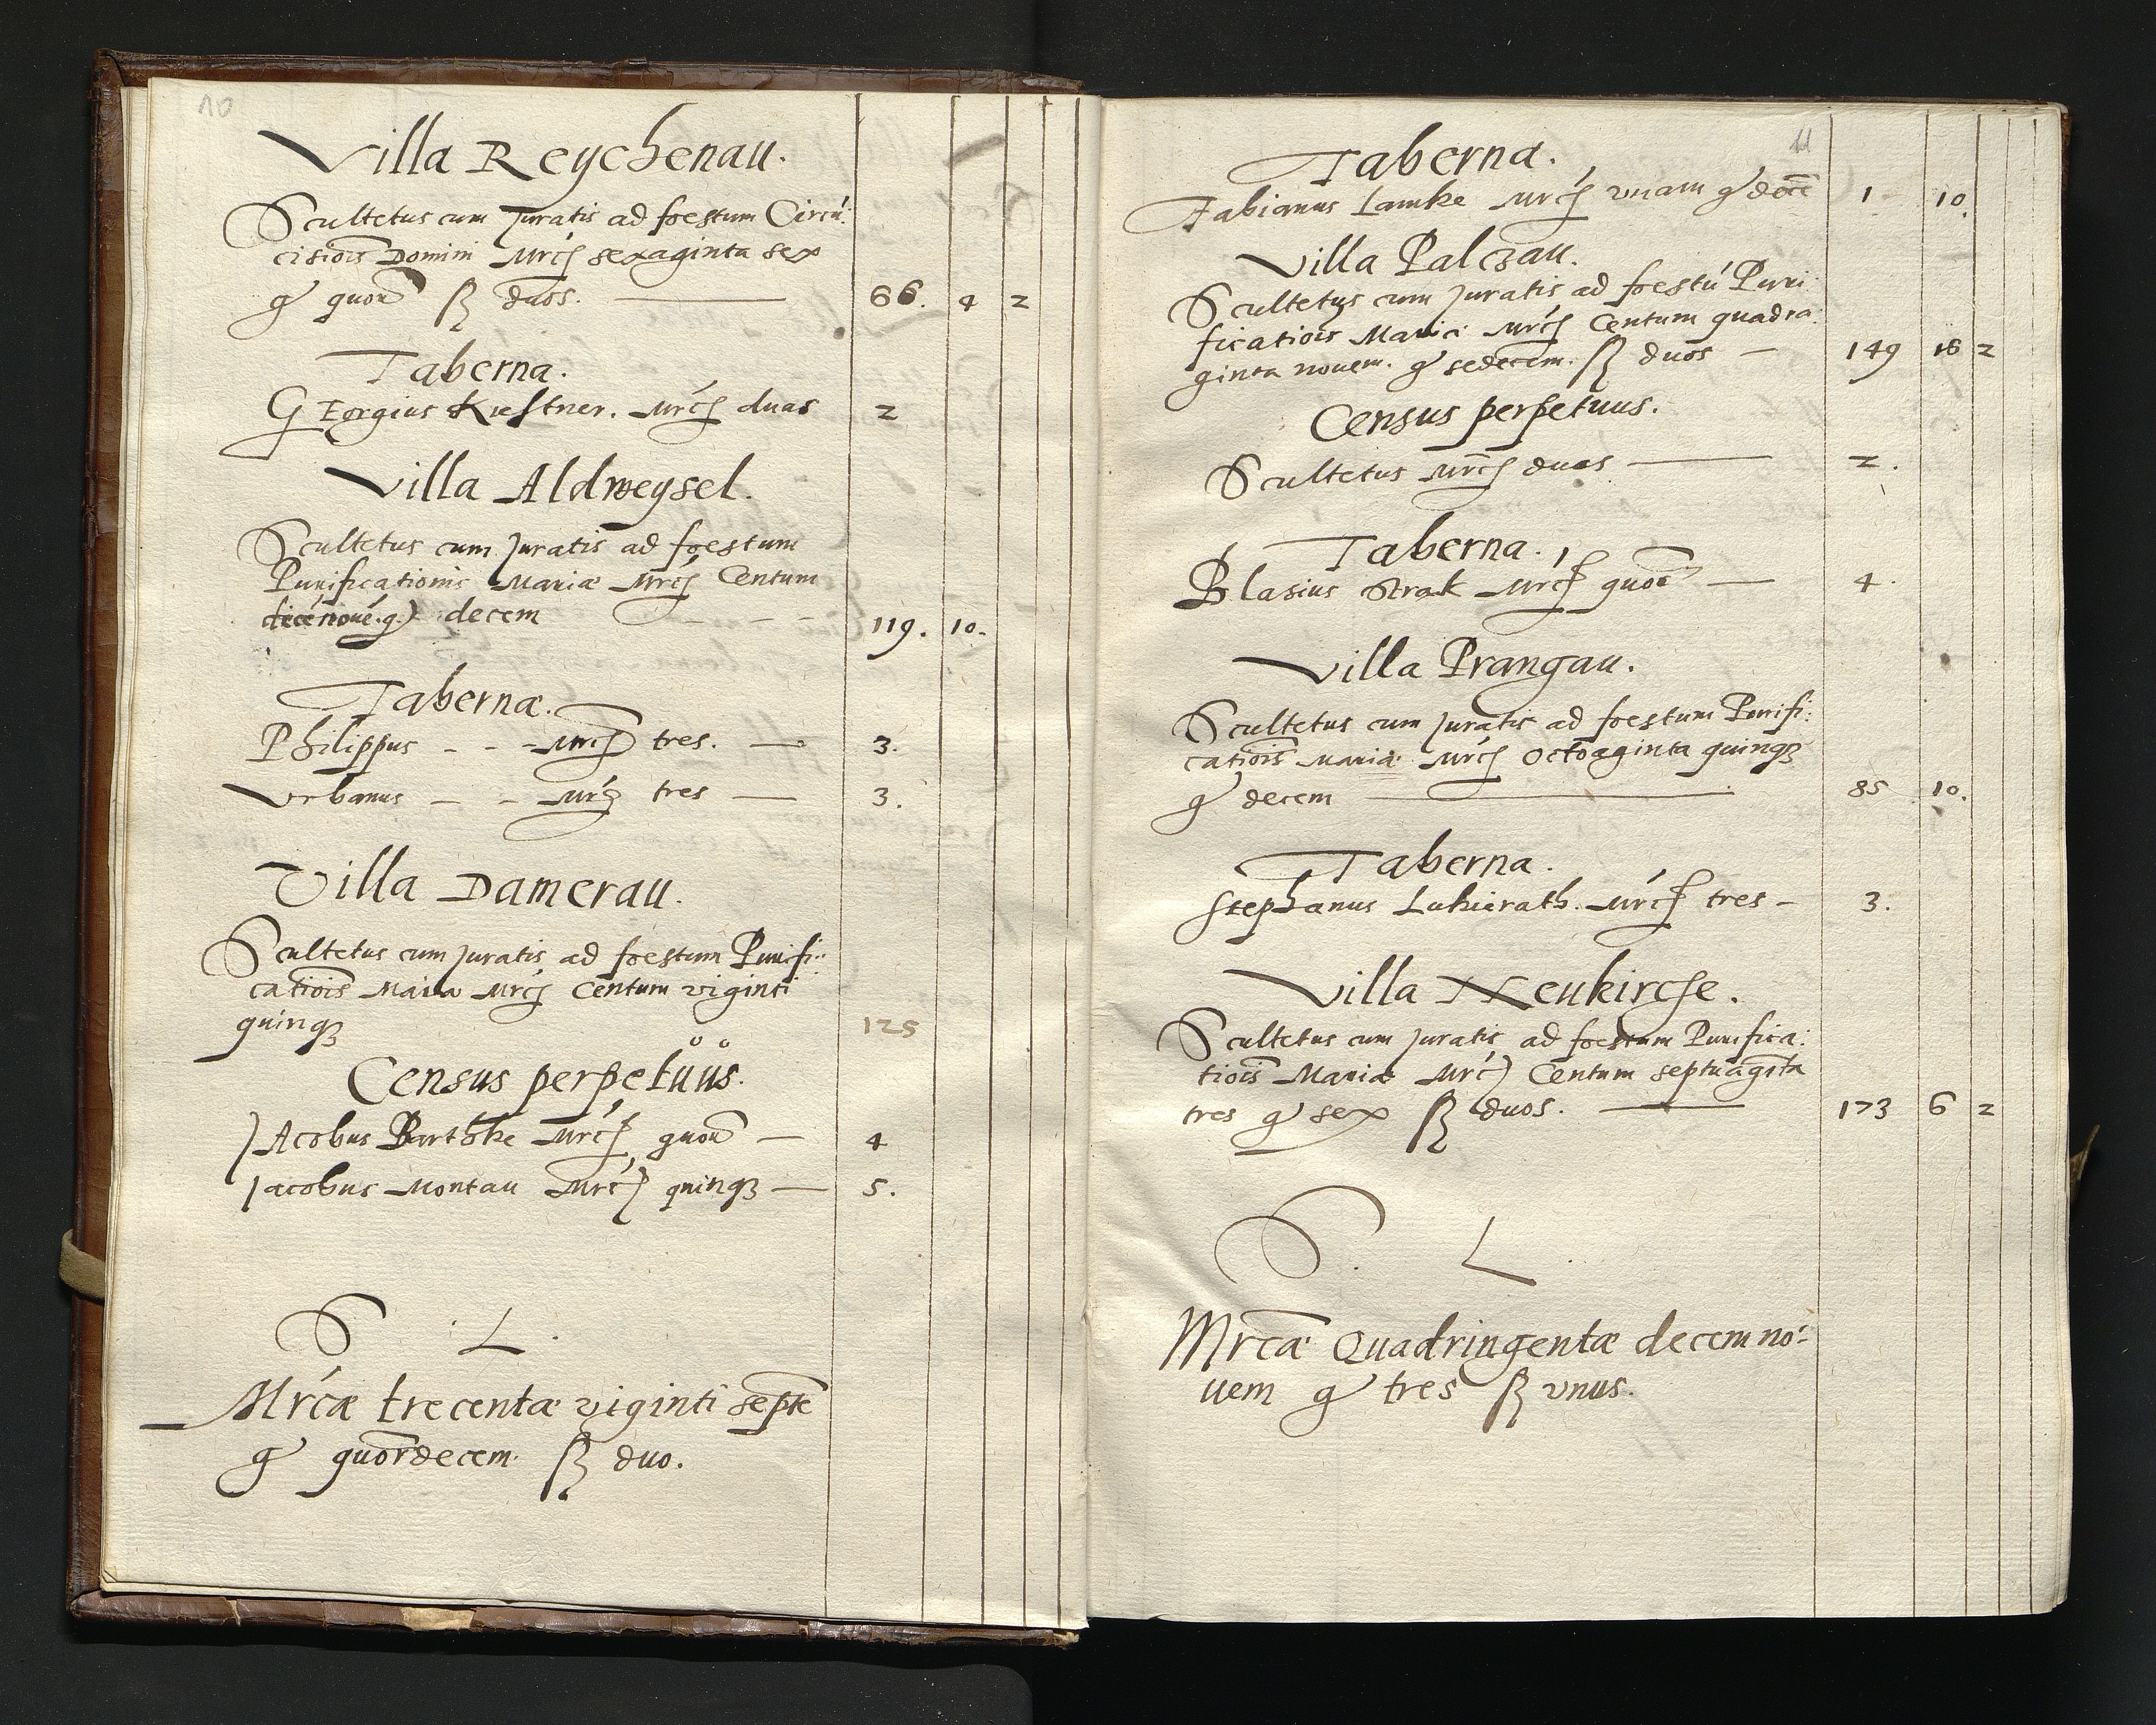 10
Villa Reychenau.
Scultetus cum Juratis ad foestum Circú:
cisiois Domini Mrcs sexaginta sex
g quor ß duos. 66. 4 2
Taberna.
GEorgius Kiestner. Mrcs duas 2
Villa Aldweysel.
Scultetus cum Juratis ad foestum
Purificationis Mariæ Mrcs Centum
decénoué. g decem 119. 10.
Tabernæ.
Philippus - - - Mrcs tres. 3.
Vrbanus - - Mrcs tres 3.
Villa Damerau.
Scultetus cum Juratis ad foestum Purifi:
catiois Maria Mrcs Centum viginti
quinq3 125
Census perpetuus.
JAcobus Barthke Mrcs quor 4
Jacobus Montau Mrcs quinq3 5.
S. L.
Mrcæ trecentæ viginti septe
g quordecem. ß duo.
11
Taberna.
Fabianus Lamke Mrcs vnam g dece 1 10.
Villa Palczau.
Scultetus cum Juratis ad foestú Puri:
ficatiois Mariæ Mrcs Centum quadra:
ginta nouem. g sedecem. ß duos 149 16 2
Census perpetuus.
Scultetus Mrcs duas 2.
Taberna.
Blasius Strak Mrcs quor 4.
Villa Prangau.
Scultetus cum Juratis ad foestum Purifi:
catiois Mariæ Mrcs Octoaginta quinq3
g decem 85 10.
Taberna.
Stephanus Lukierath. Mrcs tres 3.
Villa Neukirche.
Scultetus cum Juratis ad foestum Purifica:
tiois Mariæ Mrcs Centum septuaginta
tres g sex ß duos. 173 6 2
S. L.
Mrcæ Quadringentæ decem no:
uem g tres ß vnus.